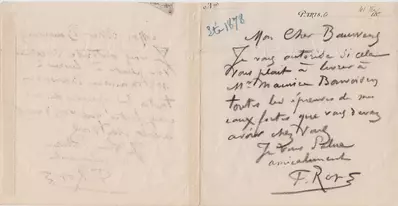 PARIS, G
Eté 1878
Mon Cher Bouvrens
Je vous autorise si cela
vous plait à livrer à
Mr Maurice Bonvoisin
toutes les épreuves de mes
eaux fortes que vous devez
avoir chez vous
Je vous Salue
amicalement
F. Rops